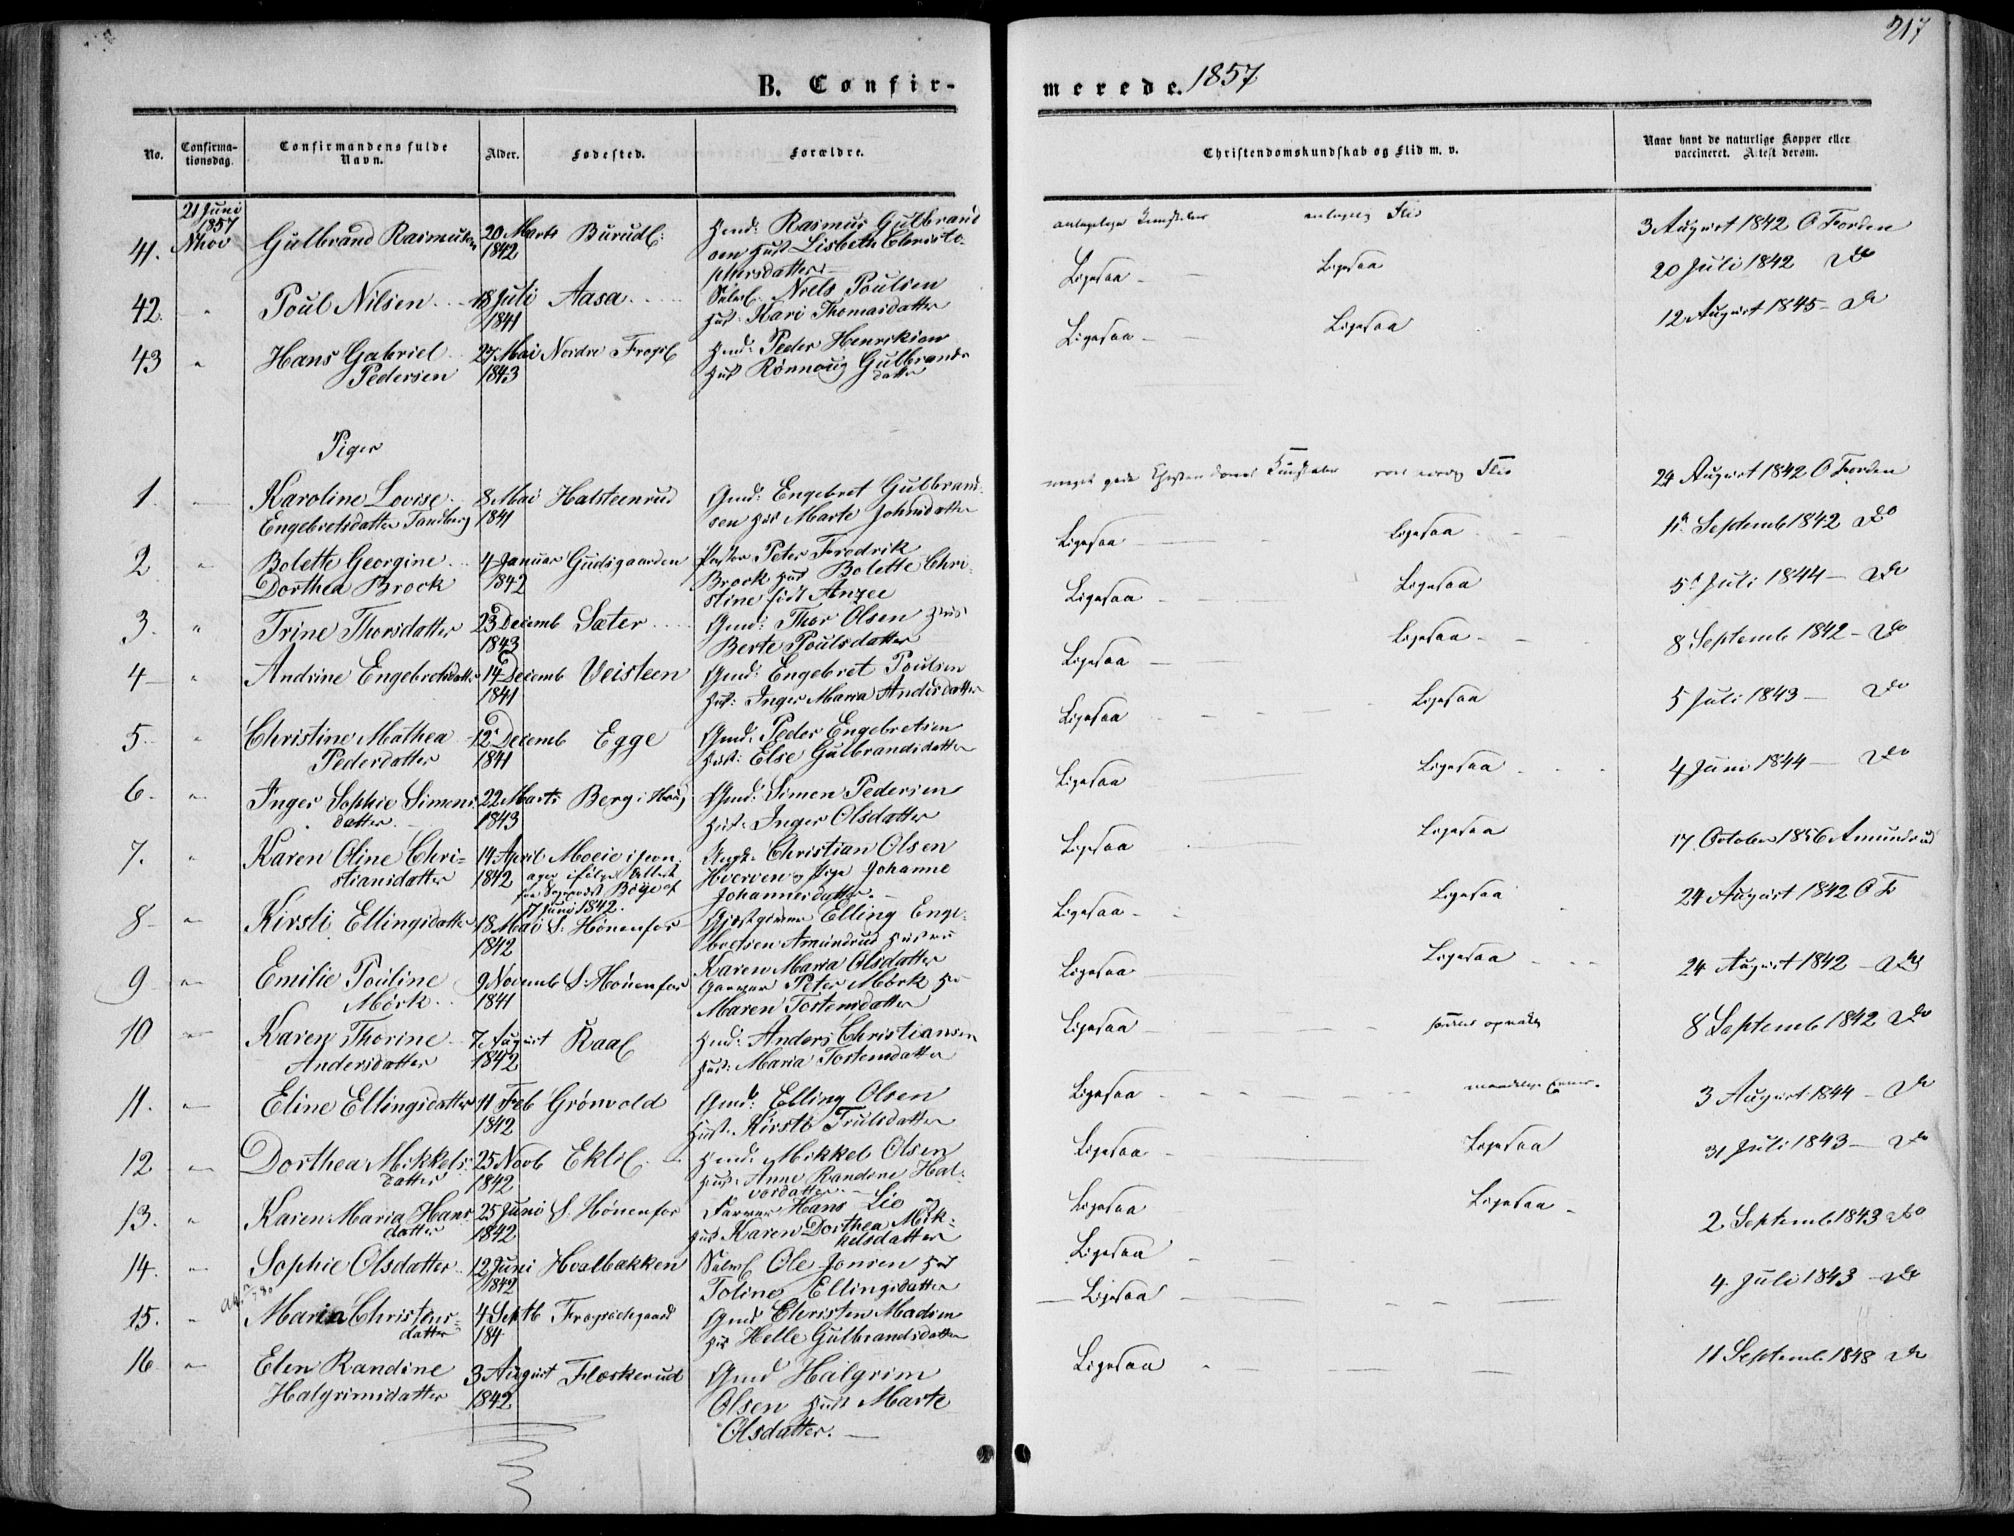 217
B. Confir-
merede. 1857
No.
Confirma-
tionsdag.
Confirmandens fulde
Navn.
Alder.
Fødested.
Forældre.
Christendomskundskab og Flid m. v.
Naar havt de naturlige Kopper eller
vaccineret. Attest derom.
21 Juni
1857
41. Gulbrand Rasmusen 20 Marts Burud Rasmus Gulbrand
1842 sen Hust Lisbeth Christo-
phersdatter Flid 3 August 1842 O Forden
42. " Poul Nilsen 18 Juli Aasa Niels Poulsen Ligesaa Ligesaa 20 Juli 1842 Do
1841 Hust. Kari Thomasdatter
43 " Hans Gabriel 27 Mai Nordre Peder Henriksen Ligesaa Ligesaa 12 August 1845 Do
Pedersen 1843 Hust Rønnoug Gulbrands
datter
Piger
1. Karoline Lovise 8 Mai Halsteenrud Gmd: Engebret Gulbrand- meget gode Christendoms Kundskaber Flid 24 August 1842 O Forden
Engebretsdatter Tandberg 1841 sen Hust Marte Johnsdatter
2 " Bolette Georgine 4 Januar Gudsgaarden Peter Fredrik Ligesaa Ligesaa 11 Septemb 1842 Do
Dorthea Brock 1842 Brock Hust Bolette Chri-
stine født Anzee
3. " Trine Thorsdatter 23 Decemb Sæter Gmd: Thor Olsen Hust Ligesaa Ligesaa 5 Juli 1844 Do
1843 Berte Poulsdatter
4 " Andrine Engebretsdatter 14 Decemb Veisteen Gmd: Engebret Poulsen Ligesaa Ligesaa 8 Septemb 1842 Do
1841 Hust: Inger Maria Andersdatter
5. " Christine Mathea 12 Decemb Egge Gmd. Peder Engebretsen Ligesaa Ligesaa 5 Juli 1843 Do
Pedersdatter 1841 Hust: Else Gulbrandsdatter
6. " Inger Sophie Simens- 22 Marts Berg i Haug Gmd: Simen Pedersen Ligesaa Ligesaa 4 Juni 1844 Do
datter 1843 Hust. Inger Olsdatter
7. " Karen Oline Chri- 14 April Moeie Christian Olsen Ligesaa Ligesaa 17 October 1856 Amundrud
stiansdatter 1842 Hverven og Pige Johanne
Johannesdatter
7 Juni 1842.
8 " Kirsti Ellingsdatter 18 Mai S. Hønenfos Elling Enge- Ligesaa Ligesaa 24 August 1842 O F
1842 bretsen Amundrud Hustru
Karen Maria Olsdatter
9 " Emilie Pouline 9 Novemb S. Hønenfos Garver Peter Mørk Ligesaa Ligesaa 24 August 1842 Do
Mørk 1841 Maren Tostensdatter
10 Karen Thorine 7 August Raae Anders Christiansen Ligesaa 8 Septemb 1842 Do
Andersdatter 1842 Hust: Maria Tostensdatter
11. Eline Ellingsdatter 11 Feb Grønvold Gmd: Elling Olsen Ligesaa 3 August 1844 Do
1842 Hust. Kirsti Trulsdatter
12 Dorthea Mikkels- 25 Novb Mikkel Olsen Ligesaa Ligesaa 31 Juli 1843 Do
datter 1842 Hust: Anne Randine Hal-
vordatter
13. " Karen Maria Hans 25 Juni S. Hønenfos Farver Hans Lie og Ligesaa Ligesaa 2 Septemb 1843 Do
datter 1842 Hust Karen Dorthea Mik-
kelsdatter
14. Sophie Olsdatter 12 Juni Hvalbakken Ole Jonsen Hust Ligesaa 4 Juli 1843 Do
1842 Toline Ellingsdatter
15. " Maria Christens- 4 Septb Gmd Christen Madsen Ligesaa
datter 184 Helle Gulbrandsdatter
16 Elen Randine 3 August Flaskerud Gmd Halgrim Ligesaa 11 Septemb 1848 Do
Halgrimsdatter 1842 Olsen Hust Marte
Olsdatter.